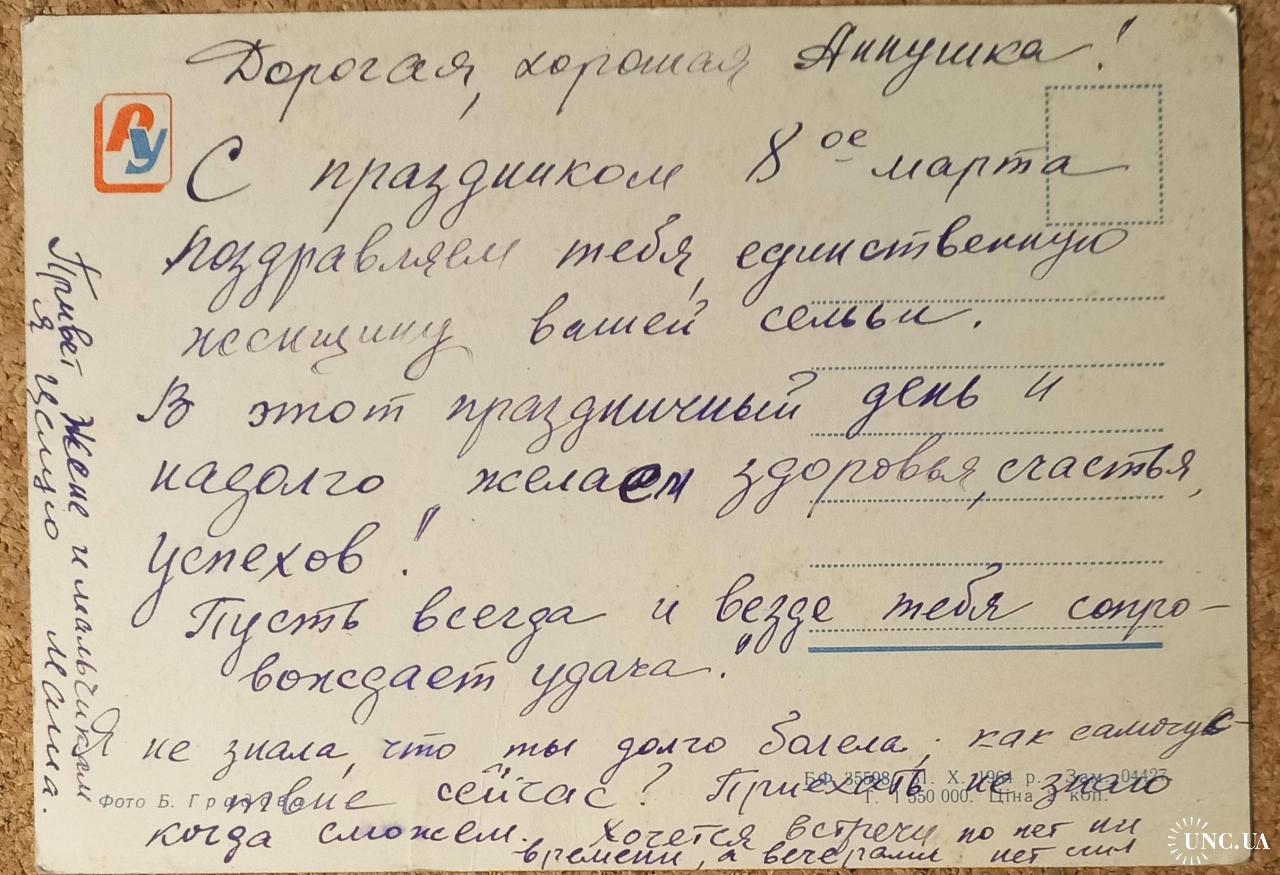 Дорогая, хорошая Аннушка!
РУ
С праздником 8ое марта
поздравляем тебя, единственную
женщину вашей семьи.
В этот праздничный день и
надолго желаем здоровья, счастья,
успехов!
Пусть всегда и везде тебя сопро-
вождает удача."
Я не знала, что ты долго болела, как самочув-
твие сейчас? Приехать не знаю
когда сможем. Хочется встречи но нет ни
времени, а вечерами нет сил
Привет Жене и мальчикам
Я целую мама.
Фото Б.
БФ 35598. 1. X. 1964 р. Зам. 04427
Т. 1 550 000. Ціна 3 коп.
UNC.UA